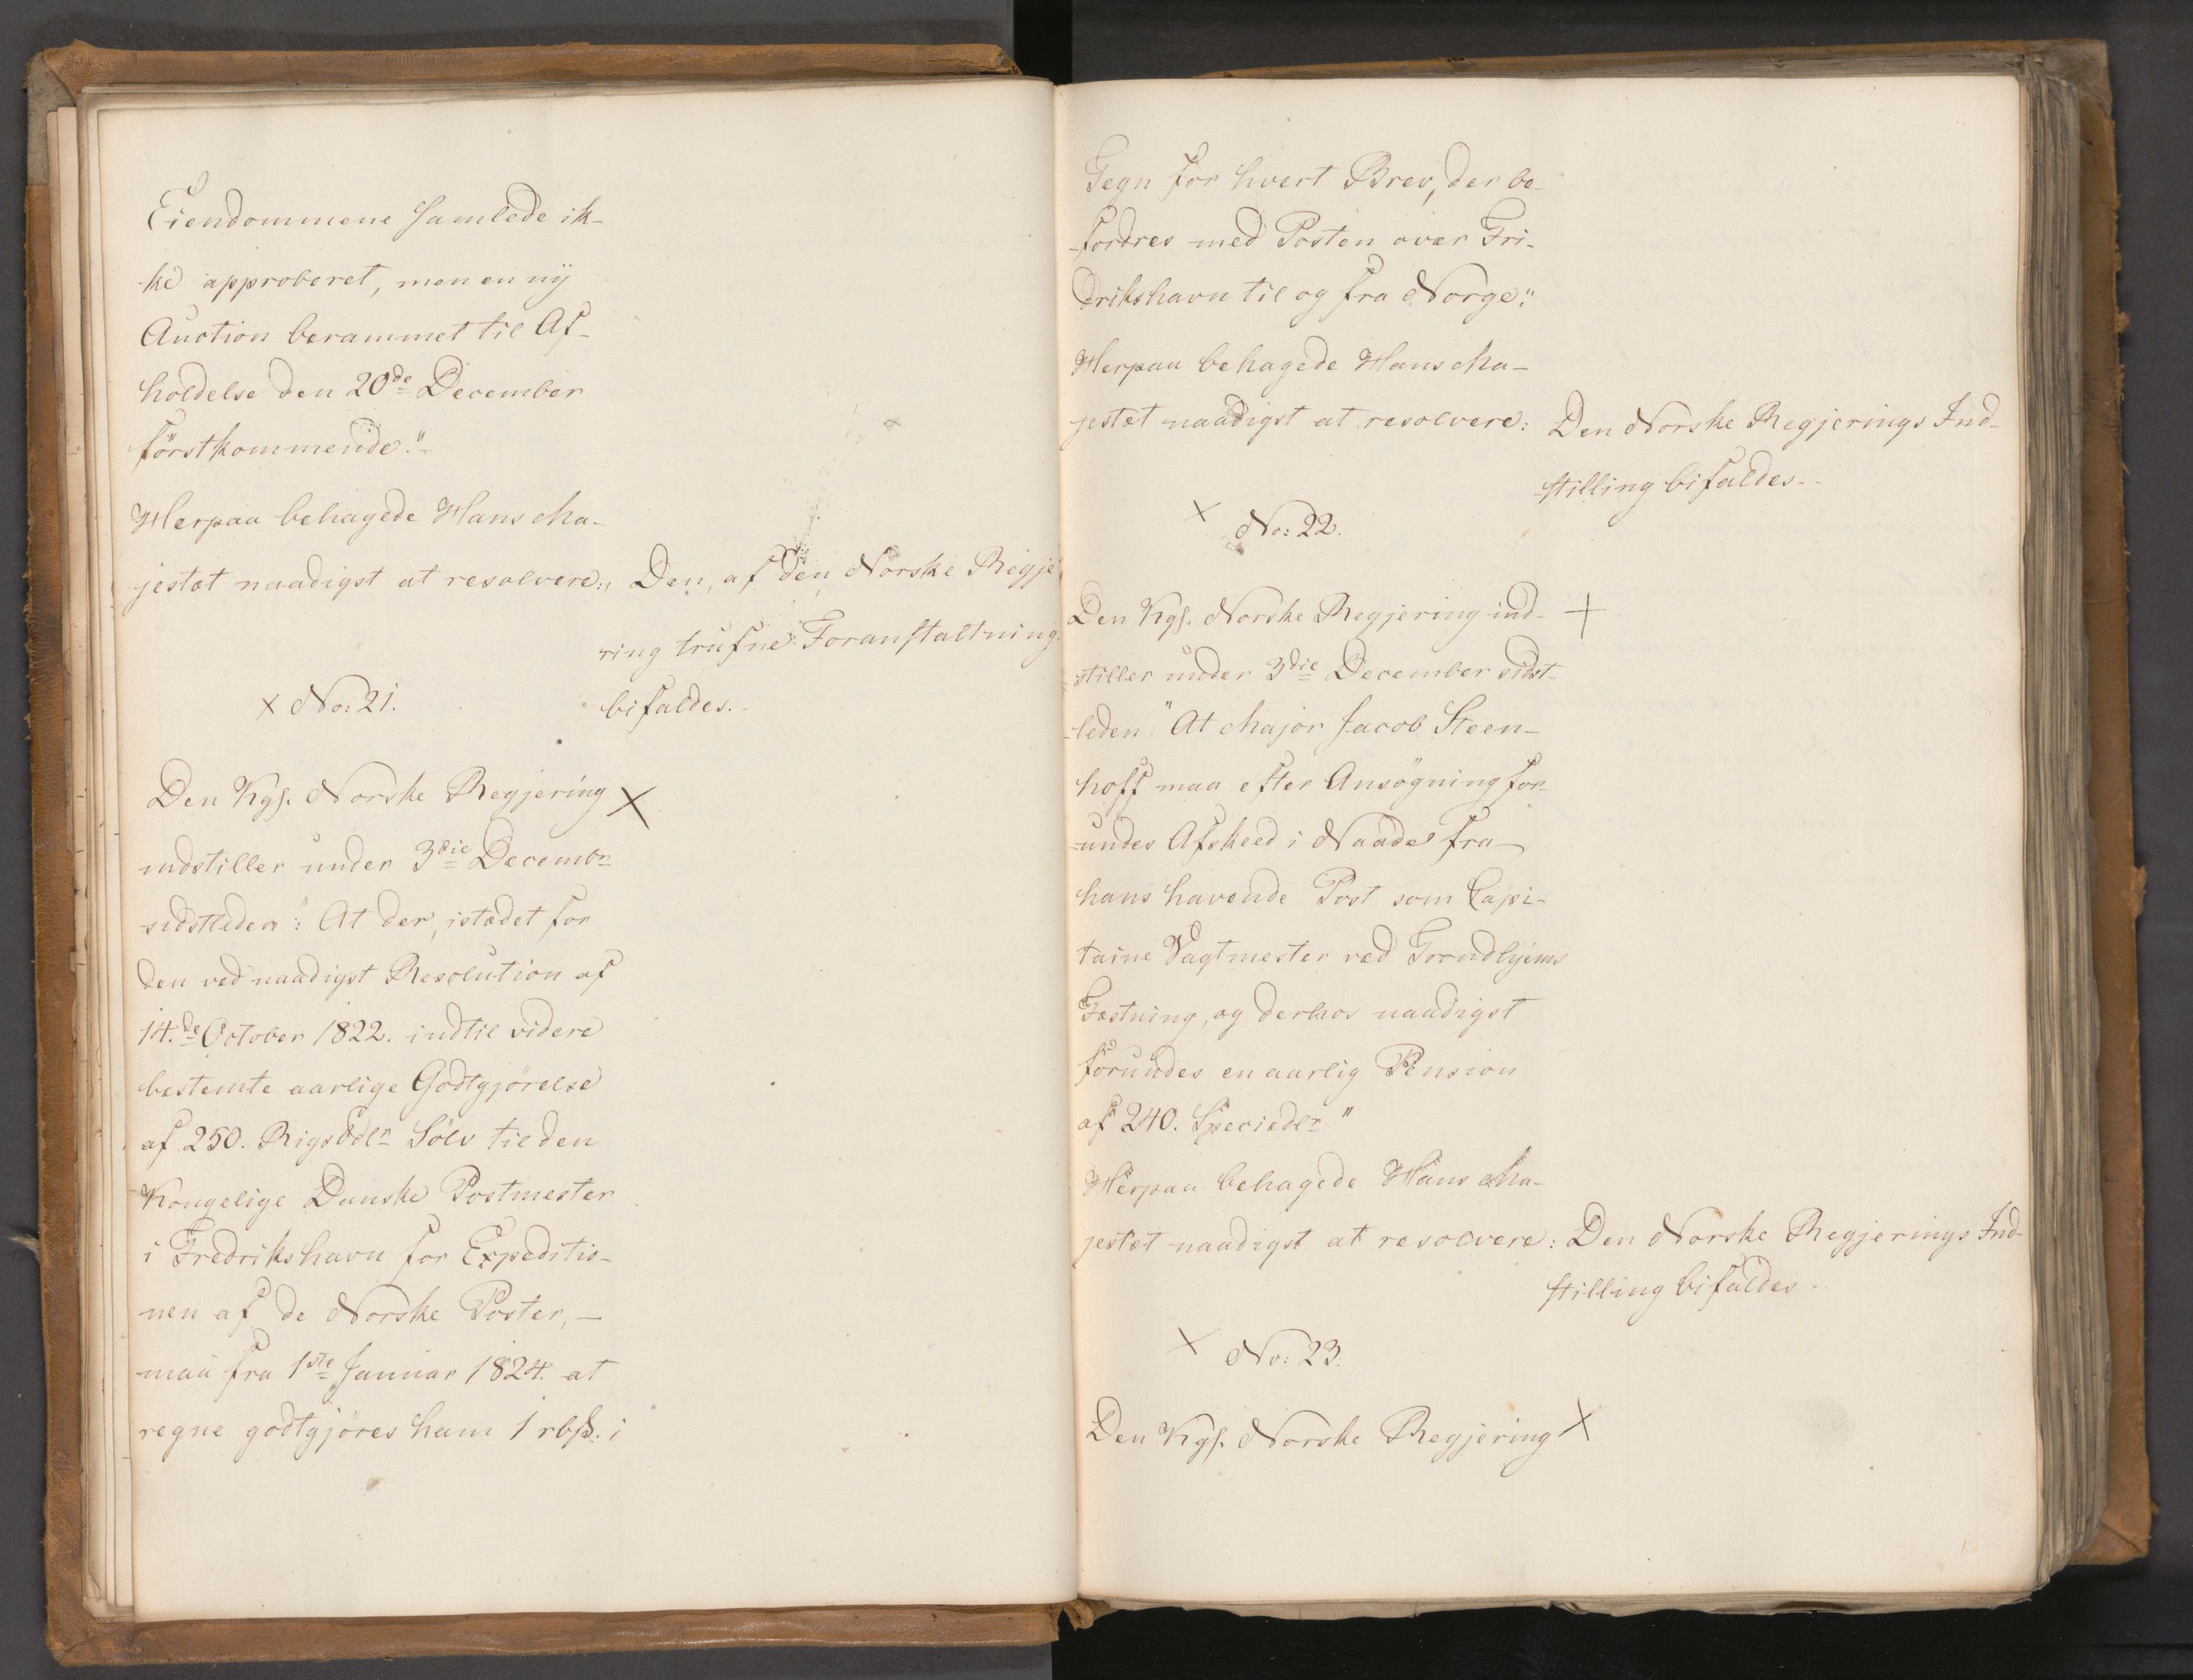 Eiendommene samlede ik-
ke approberet, men en ny
Auction berammet til Af-
holdelse den 20de December
förstkommende."
Herpaa behagede Hans Ma-
jestæt naadigst at resolvere:
Den, af den Norske Regje-
ring trufne Foranstaltning
bifaldes.
× No: 21.
Den Kgs. Norske Regjering ×
indstiller under 3die Decembr
sidstleden": At der, istædet for
den ved naadigst Resolution af
14.de October 1822. indtil videre
bestemte aarlige Godtgjörelse
af 250. Rigsbdlr Sölv til den
Kongelige Danske Postmester
i Fredrikshavn for Expeditio-
nen af de Norske Poster, –
maa fra 1ste Januar 1824. at
regne godtgjöres ham 1 rbß. i
Tegn for hvert Brev, der be-
-fordres med Posten over Fri-
drikshavn til og fra Norge."
Herpaa behagede Hans Ma-
jestæt naadigst at resolvere:
Den Norske Regjerings Ind-
-stilling bifaldes.
× No: 22.
Den Kgs. Norske Regjering ind- +
stiller under 3die December sidst-
-leden "At Major Jacob Steen-
hoff maa efter Ansögning for-
-undes Afskeed i Naade fra
hans havende Post som Capi-
taine Vagtmester ved Trondhjems
Fæstning, og derhos naadigst
forundes en aarlig Pension
af 240. Speciedlr"
Herpaa behagede Hans Ma-
jestæt naadigst at resolvere:
Den Norske Regjerings Ind-
stilling bifaldes.
× No: 23.
Den Kgs. Norske Regjering ×